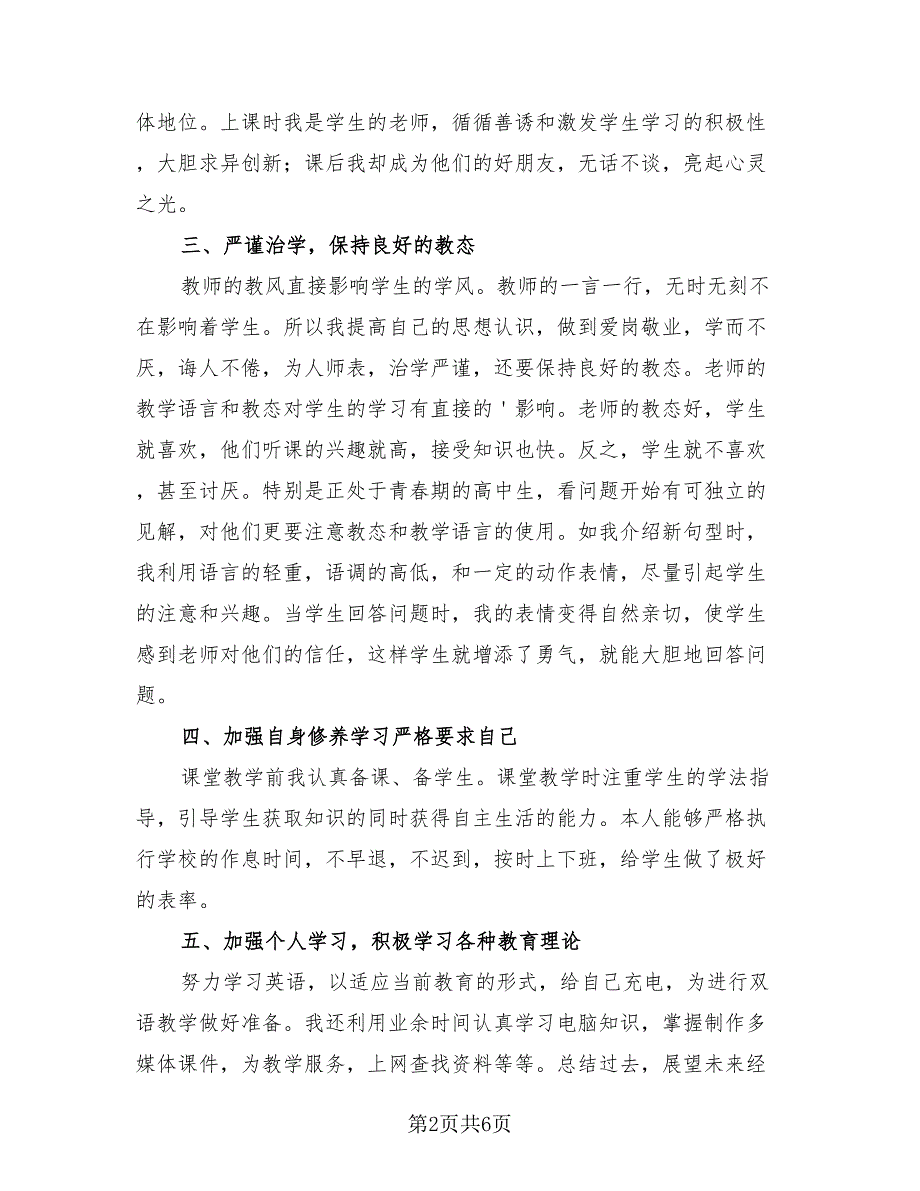 体地位。上课时我是学生的老师，循循善诱和激发学生学习的积极性
，大胆求异创新；课后我却成为他们的好朋友，无话不谈，亮起心灵
之光。
三、严谨治学，保持良好的教态
教师的教风直接影响学生的学风。教师的一言一行，无时无刻不
在影响着学生。所以我提高自己的思想认识，做到爱岗敬业，学而不
厌，诲人不倦，为人师表，治学严谨，还要保持良好的教态。老师的
教学语言和教态对学生的学习有直接的＇影响。老师的教态好，学生
就喜欢，他们听课的兴趣就高，接受知识也快。反之，学生就不喜欢
，甚至讨厌。特别是正处于青春期的高中生，看问题开始有可独立的
见解，对他们更要注意教态和教学语言的使用。如我介绍新句型时，
我利用语言的轻重，语调的高低，和一定的动作表情，尽量引起学生
的注意和兴趣。当学生回答问题时，我的表情变得自然亲切，使学生
感到老师对他们的信任，这样学生就增添了勇气，就能大胆地回答问
题。
四、加强自身修养学习严格要求自己
课堂教学前我认真备课、备学生。课堂教学时注重学生的学法指
导，引导学生获取知识的同时获得自主生活的能力。本人能够严格执
行学校的作息时间，不早退，不迟到，按时上下班，给学生做了极好
的表率。
五、加强个人学习，积极学习各种教育理论
努力学习英语，以适应当前教育的形式，给自己充电，为进行双
语教学做好准备。我还利用业余时间认真学习电脑知识，掌握制作多
媒体课件，为教学服务，上网查找资料等等。总结过去，展望未来经
第2页共6页